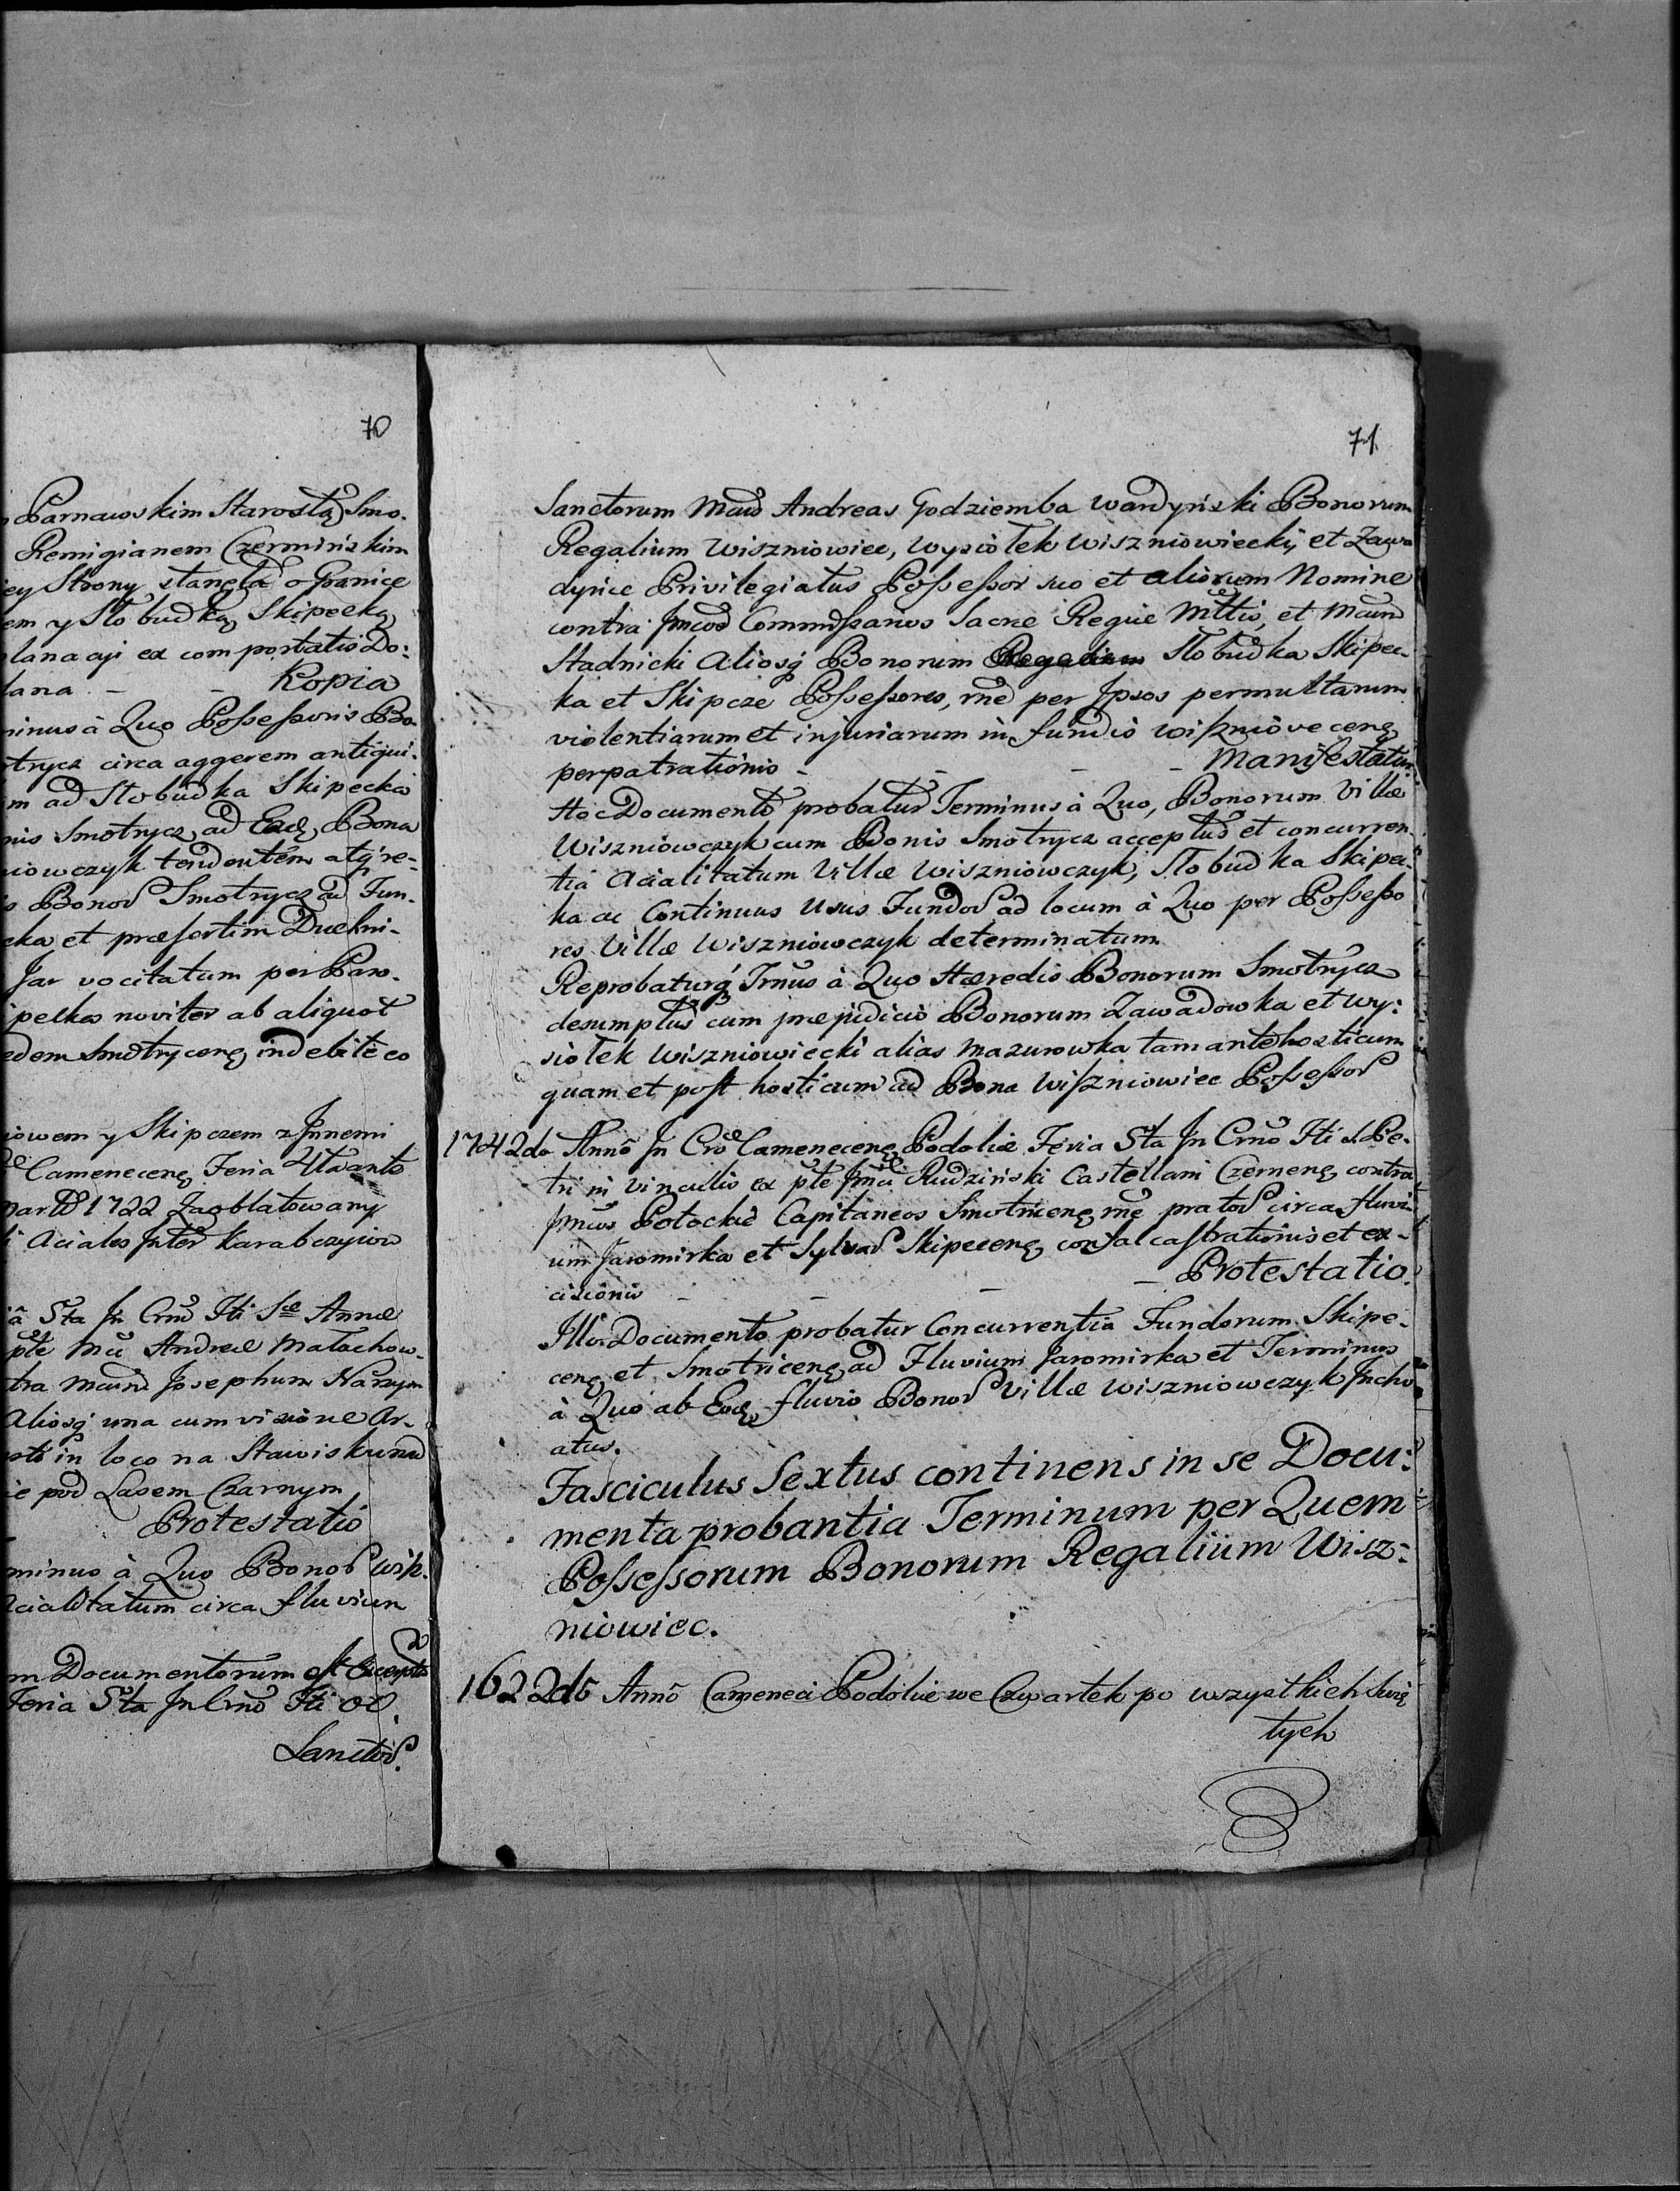 70
Parnawskim Starostą Smo-
Remigianem Czermińskim
ey Strony stanęła o Granice
em y Słobudką Skipecką
lana ayi ex comportatis Do:
lana - - Kopia
minus à Quo Possessoris Bo-
trycz circa aggerem antiqui-
m ad Słobudka Skipecka
nis Smotrycz, ad Eadē Bona
niowczyk tendentem atq́ re-
s Bonoȓ Smotrycz ad Fun-
cka et præsertim Duchni-
Jar vocitatum per Paro-
ipelkes noviter ab aliquot
edem Smotrycenȩ indebitè co
iowem y Skipczem z Innemi
Camenecenȩ Feria 4ta antè
mar A͠o 1722 Zaoblatowany
i Aciales Inter Karabczyiow
iâ 5ta In Crno Fti Sæ Annæ
pte Mci Andreæ Małachow-
tra Mcum Josephum Narzym
Aliosq́ una cum visione Ar-
sti in loco na Stawisku nad
ie pod Lasem Czarnym
Protestatio
minus à Quo Bonoȓ Wisz-
Acialitatum circa fluvium
m Documentorum est Excepta
Feria 5ta In Crno Fti OO.
Sanctoȓ.
71
Sanctorum Mcus Andreas Godziemba Wardyński Bonorum
Regalium Wiszniowiec, Wysiołek Wiszniowieckij et Zawa
dynce Privilegiatus Possessor suo et aliorum Nomine
contra Jmcos Commissarios Sacræ Regiæ Mttis, et Mcum
Stadnicki Aliosq́ Bonorum Regalium Słobudka Skipec-
ka et Skipcze Possessores, rnē per Ipsos permultarum
violentiarum et injuriarum in fundis Wiszniovecenȩ
perpatrationis - - - - Manifestatur
Hoc Documento probatur Terminus à Quo, Bonorum Villæ
Wiszniowczyk cum Bonis Smotrycz acceptus et concurren
tia Acialitatum Villæ Wiszniowczyk, Słobudka Skipec-
ka ac Continuus Usus Fundoȓ ad locum à Quo per Possesso
res Villæ Wiszniowczyk determinatum
Reprobaturq́ Trnus à Quo Hæredis Bonorum Smotrycz
desumptus cum præjudicio Bonorum Zawadowka et Wy:
siołek Wiszniowiecki alias Mazurowka tam antehosticum
quam et post hosticum ad Bona Wiszniowiec Possessoȓ
1742do Annô In Crô Camenecenȩ Podoliæ Feria 5ta In Crno Fti S. Pe-
tri in Vinculis ex pte Jmci Rudziński Castellani Czernenȩ contra
Jmcos Potockie Capitaneos Smotricenȩ rnē pratoȓ circa fluvi-
um Jaromirka et Sylvaȓ Skipecenȩ confalcastrationis et ex-
cisionis - - - - Protestatio.
Illo Documento probatur Concurrentia Fundorum Skipe-
cenȩ et Smotricenȩ ad Fluvium Jaromirka et Terminus
à Quo ab Eodē fluvio Bonoȓ Villæ Wiszniowczyk Incho
atus.
Fasciculus Sextus continens in se Docu:
menta probantia Terminum per Quem
Possessorum Bonorum Regalium Wisz-
niowiec.
1622do Annô Cameneci Podoliæ we Czwartek po wszystkich Swię
tych